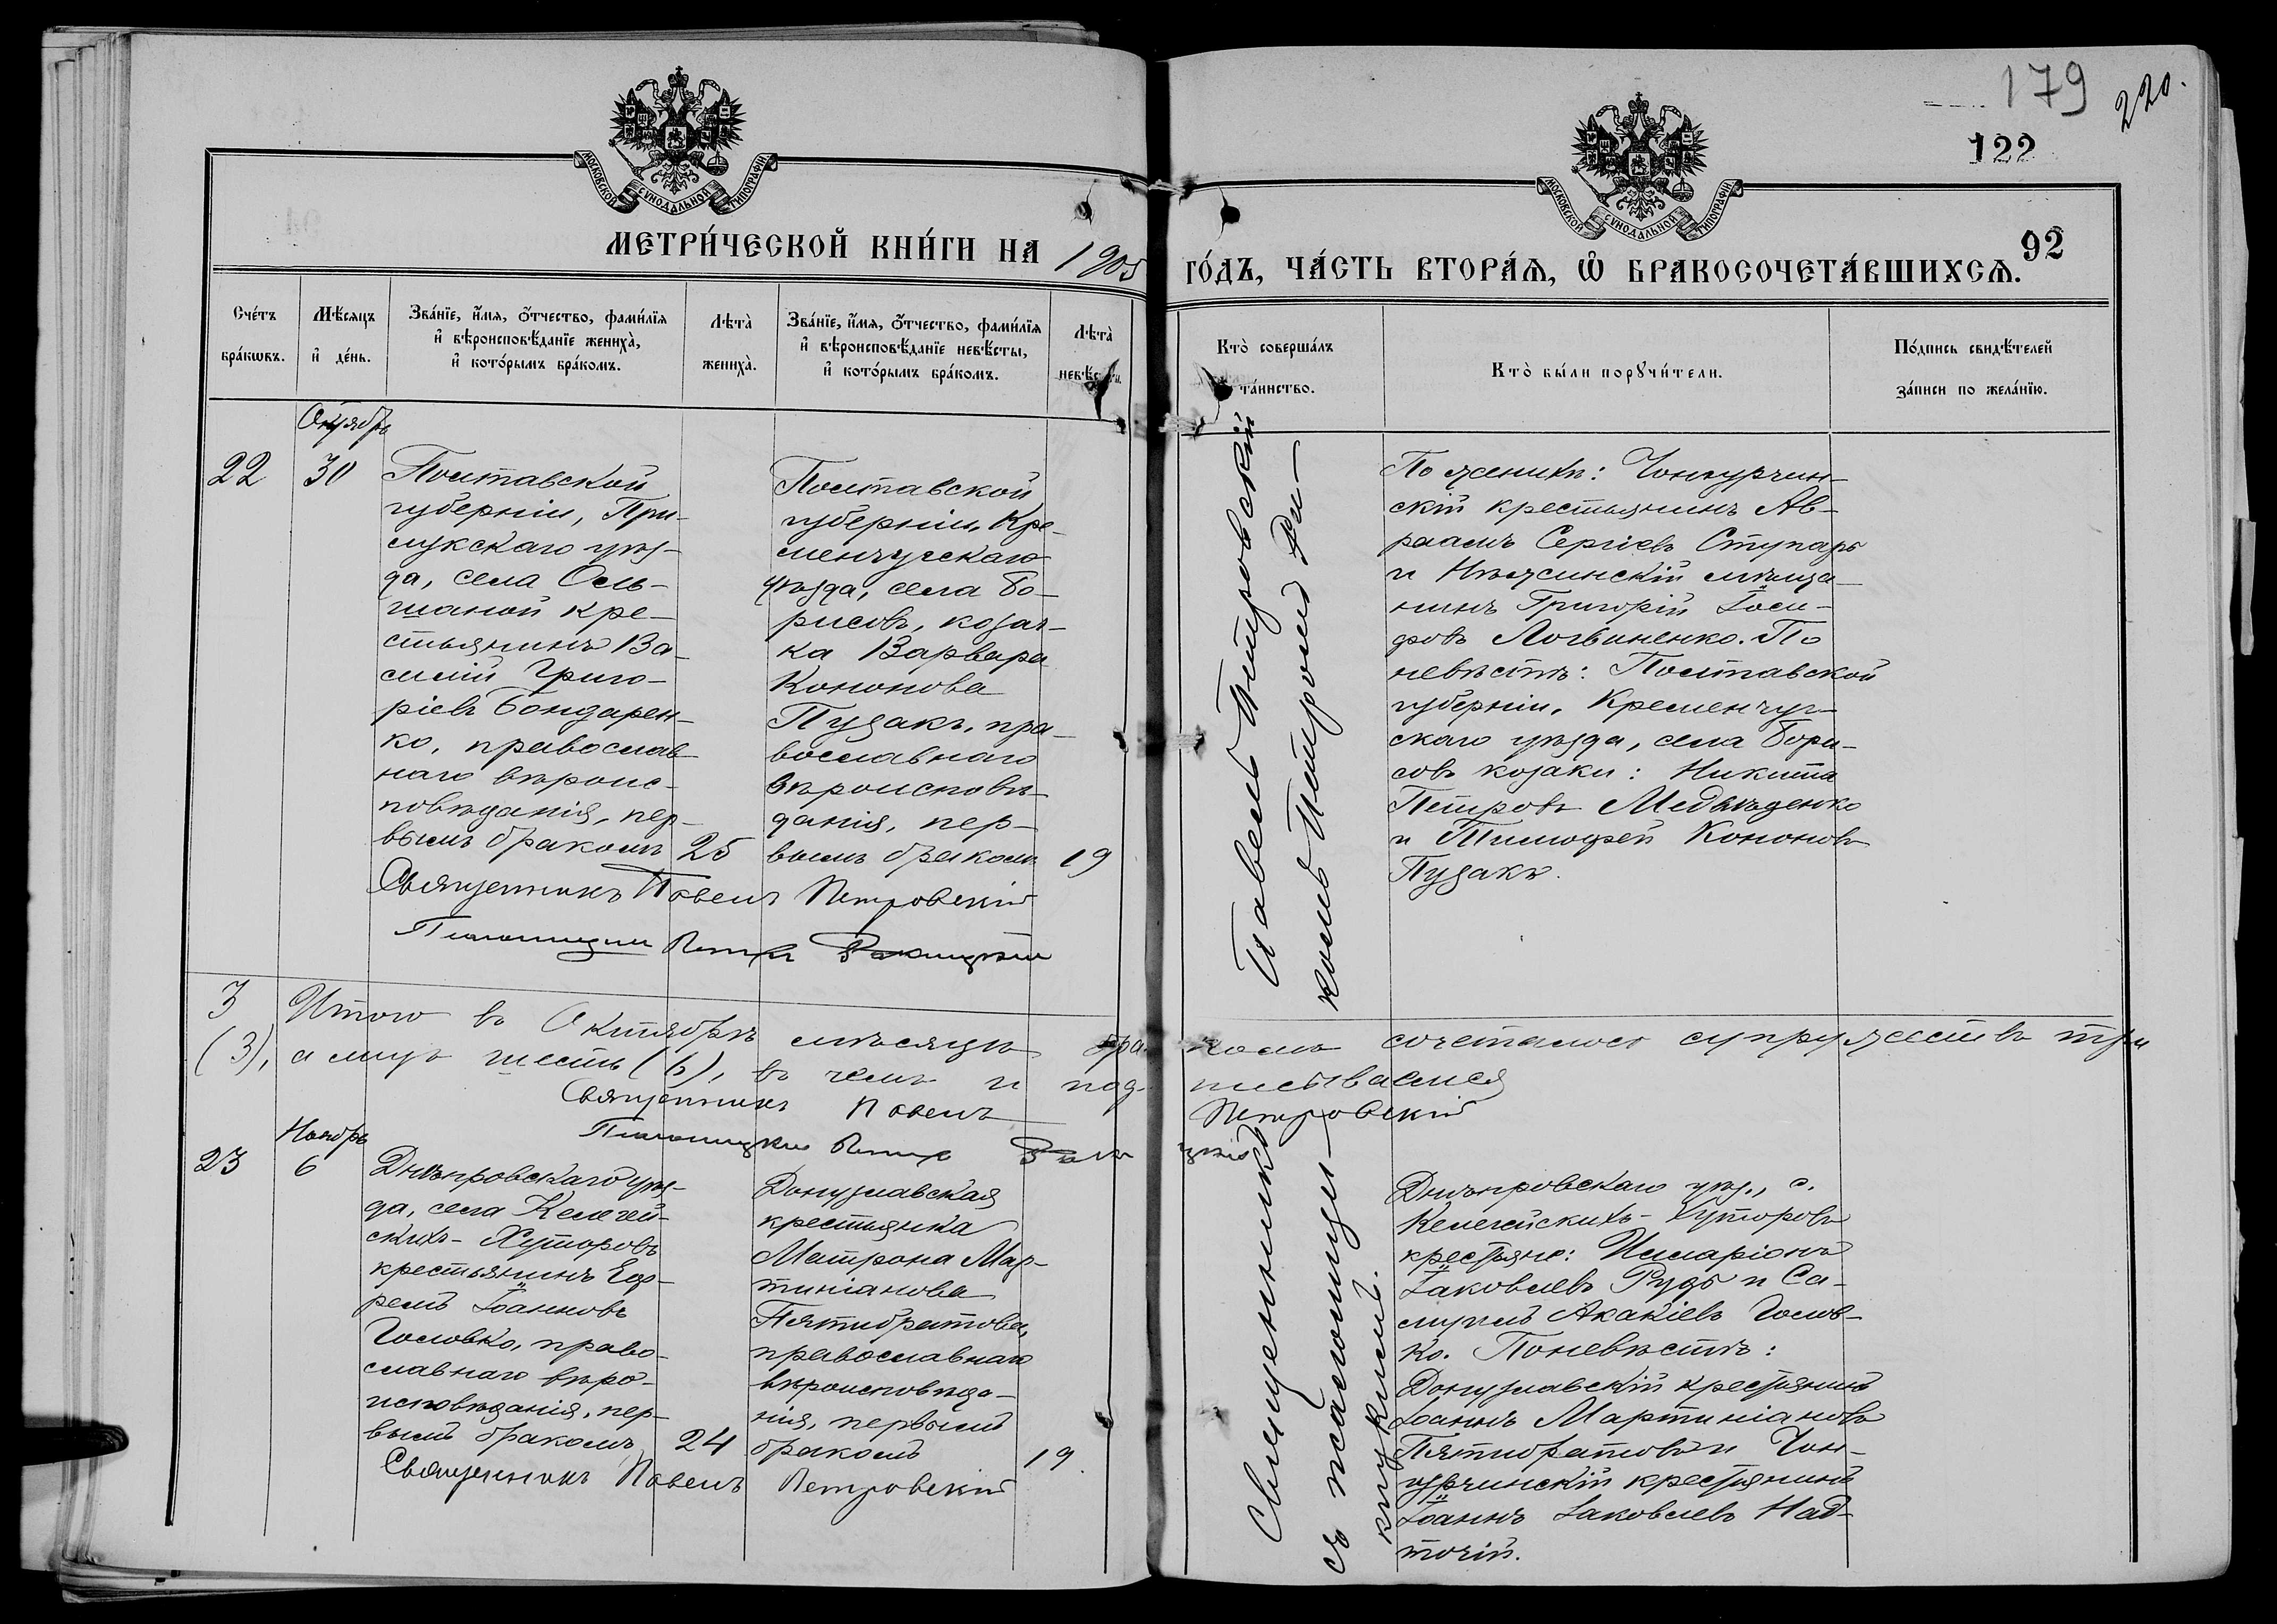 179
220.
122
МОСКОВСКОЙ СУНОДАЛЬНОЙ ТИПОГРАФІИ
МОСКОВСКОЙ СУНОДАЛЬНОЙ ТИПОГРАФІИ
МЕТРИ́ЧЕСКОЙ КНИ́ГИ НА 1905
ГО́ДЪ, ЧА́СТЬ ВТОРА́Я, Ѡ БРАКОСОЧЕТА́ВШИХСЯ.
92
Сче́тъ бра́кωвъ.
Мѣ́сяцъ и҆ де́нь.
Зва́нїе, и҆́мя, ѻ҆́тчество, фами́лїя
и҆ вѣроисповѣ́данїе жениха̀,
и҆ кото́рымъ бра́комъ.
Лѣта̀ жениха̀.
Зва́нїе, и҆́мя, ѻ҆́тчество, фами́лїя
и҆ вѣроисповѣ́данїе невѣ́сты,
и҆ кото́рымъ бра́комъ.
Лѣта̀
Кто̀ соверша́лъ
та́инство.
Кто̀ бы́ли порꙋчи́тели.
По́дпись свидѣ́телей
за́писи по жела́нїю.
Октябрь
22
30
Полтавской
губерніи, При-
лукскаго уѣз-
да, села Оль-
шаной кре-
стьянинъ Ва-
силій Григо-
ріевъ Бондарен-
ко, православ-
наго вѣроис-
повѣданія, пер-
вымъ бракомъ
25
Полтавской
губерніи, Кре-
менчугскаго
уѣзда, села Бо-
рисовъ, козач-
ка Варвара
Кононова
Пузакъ, пра-
вославнаго
вѣроисповѣ-
данія, пер-
вымъ бракомъ
19
Священникъ Павелъ Петровскій
Псаломщикъ Петръ
Священникъ Павелъ Петровскій
съ псаломщи-
комъ Петромъ
По женихѣ: Чонгурчин-
скій крестьянинъ Ав-
раамъ Сергіевъ Ступарь
и Нѣжинскій мѣща-
нинъ Григорій Іоси-
фовъ Логвиненко. По
невѣстѣ: Полтавской
губерніи, Кременчуг-
скаго уѣзда, села Бори-
совъ козаки: Никита
Петровъ Медвѣденко
и Тимофей Кононовъ
Пузакъ.
3
Итого въ Октябрѣ мѣсяцѣ бра-комъ сочеталось супружествъ три
(3), а лицъ шесть (6), въ чемъ и под-писываемся
Священникъ Павелъ Петровскій
Псаломщикъ Петръ
Ноябрь
23
6
Днѣпровскаго уѣз-
да, села Келегей-
скихъ-Хуторовъ
крестьянинъ Еф-
ремъ Іоанновъ
Головко, право-
славнаго вѣро-
исповѣданія, пер-
вымъ бракомъ
24
Донузлавская
крестьянка
Матрона Мар-
тиніанова
Пятибратова,
православнаго
вѣроисповѣда-
нія, первымъ
бракомъ
19.
Священникъ Павелъ Петровскій
Днѣпровскаго уѣз., с.
Келегейскихъ-Хуторовъ
крестьяне: Иларіонъ
Іаковлевъ Рудь и Са-
муилъ Акакіевъ Голов-
ко. По невѣстѣ:
Донузлавскій крестьянинъ
Іоаннъ Мартиніановъ
Пятибратовъ и Чон-
гурчинскій крестьянинъ
Іоаннъ Іаковлевъ Над-
точій.